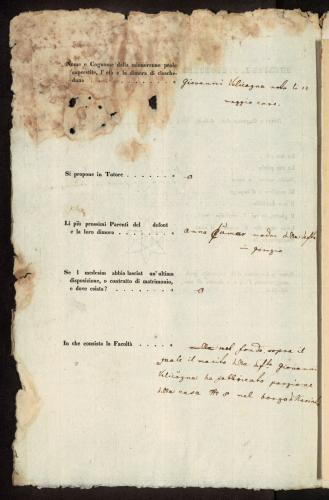 Nome e Cognome della minorenne prole
superstite, l' età e la dimora di ciasche-
duno . . . . . . . . . . . . . „ Giovanni Velicogna nato li 12
maggio
Si propone in Tutore . . . . . . . . „ 0
Li più prossimi Parenti del defont
e la loro dimora . . . . . . . . . . „ Anna madre della
in
Se l medesim abbia lasciat un'ultima
disposizione, o contratto di matrimonio,
e dove esista? . . . . . . . . . . „ 0
In che consista la Facoltà . . . . . . „ nel fondo sopra il
quale il marito della Giovanni
Velicogna ha fabbricato porzione
della casa N 8 nel borgo